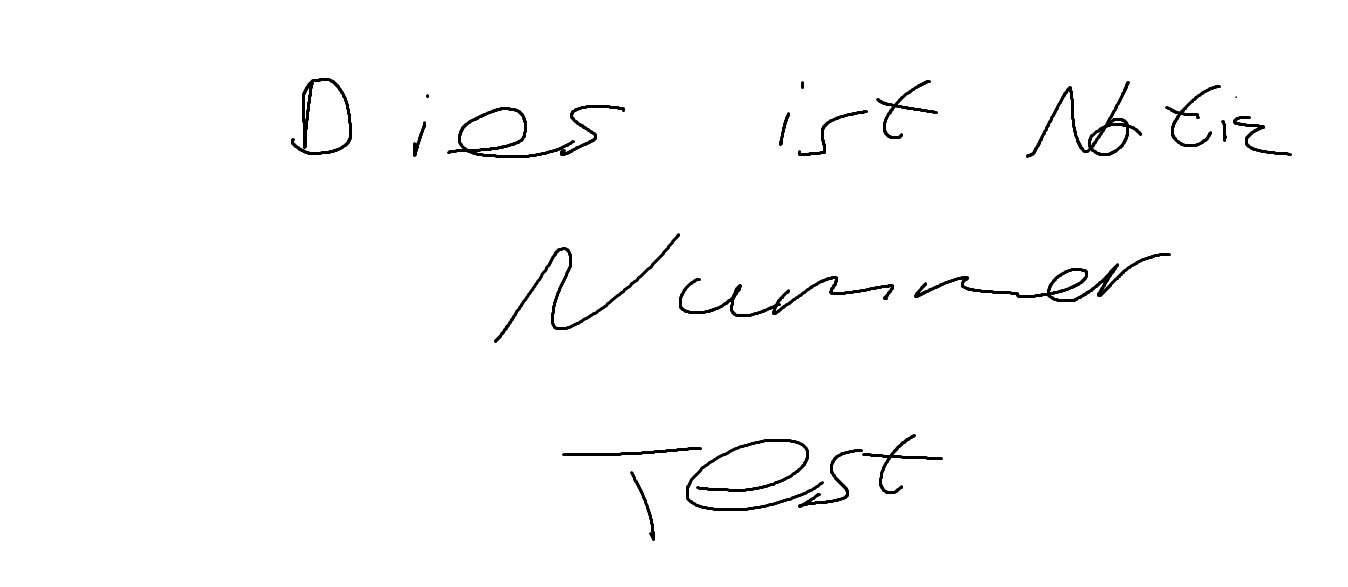 Dies ist Notiz
Nummer
Test